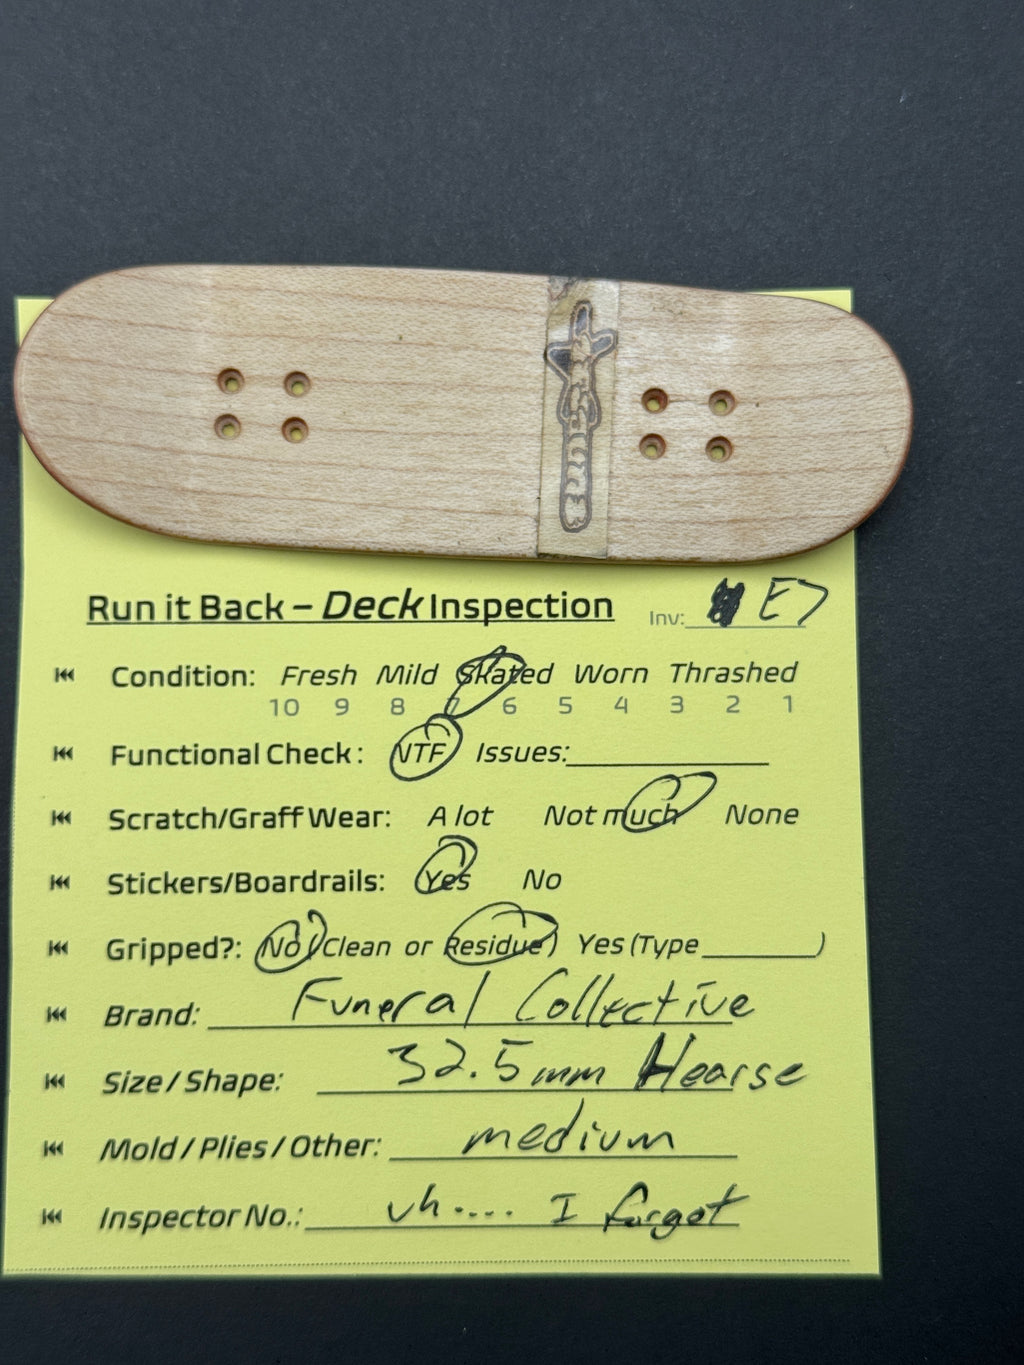 Run it Back – Deck Inspection Inv: E7
Condition: Fresh Mild Skated Worn Thrashed
10 9 8 7 6 5 4 3 2 1
Functional Check: NTF Issues:
Scratch/Graff Wear: A lot Not much None
Stickers/Boardrails: Yes No
Gripped?: No (Clean or Residue) Yes (Type )
Brand: Funeral Collective
Size / Shape: 32.5mm Hearse
Mold / Plies / Other: medium
Inspector No.: uh.... I forgot